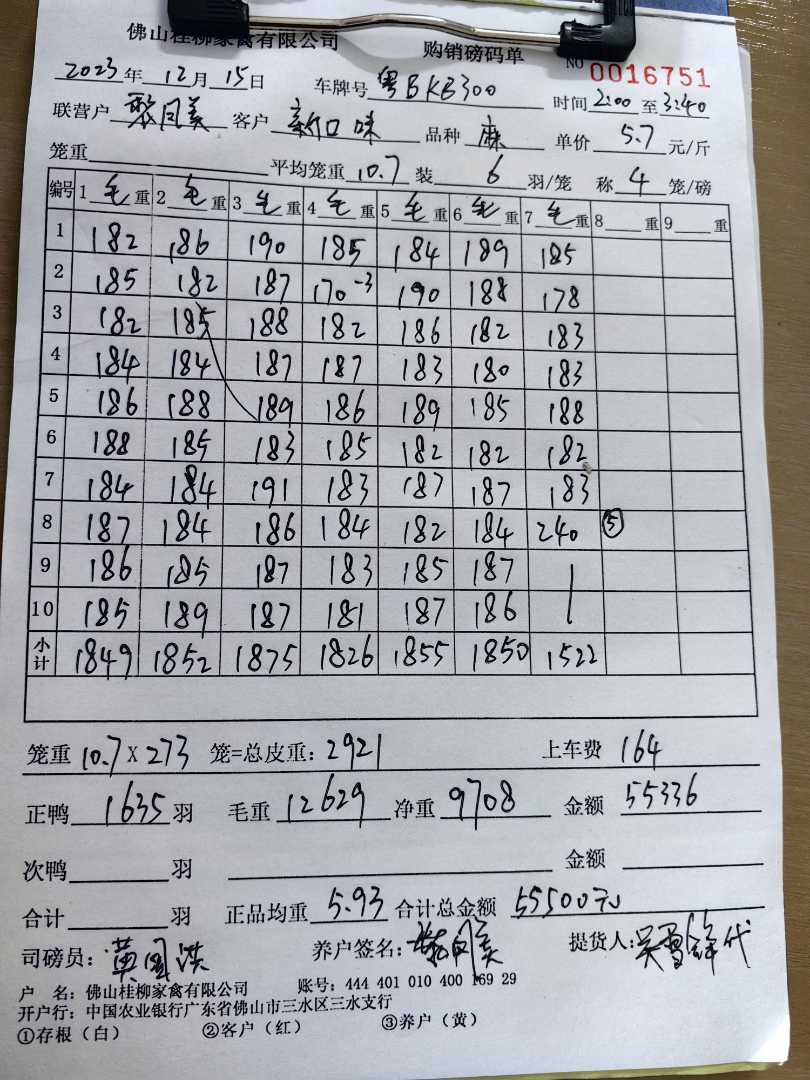 佛山桂柳家禽有限公司 购销磅码单 NO 0016751
2023年12月15日 车牌号 粤BKB300 时间 2:00 至 3:40
联营户 黎月美 客户 新口味 品种 麻 单价 5.7 元/斤
笼重 平均笼重 10.7 装 6 羽/笼 称 4 笼/磅
编号 1 毛 重 2 毛 重 3 毛 重 4 毛 重 5 毛 重 6 毛 重 7 毛 重 8 重 9 重
1 182 186 190 185 184 189 185
2 185 182 187 170-3 190 188 178
3 182 185 188 182 186 182 183
4 184 184 187 187 183 180 183
5 186 188 189 186 189 185 188
6 188 185 183 185 182 182 182
7 184 184 191 183 187 187 183
8 187 184 186 184 182 184 240 ⑤
9 186 185 187 183 185 187
10 185 189 187 181 187 186
小计 1849 1852 1875 1826 1855 1850 1522
笼重 10.7 X 273 笼=总皮重: 2921 上车费 164
正鸭 1635 羽 毛重 12629 净重 9708 金额 55336
次鸭 羽 金额
合计 羽 正品均重 5.93 合计总金额 55500元
司磅员: 黄国洪 养户签名: 黎月美 提货人: 代
户 名: 佛山桂柳家禽有限公司 账号: 444 401 010 400 169 29
开户行: 中国农业银行广东省佛山市三水区三水支行
①存根(白) ②客户(红) ③养户(黄)